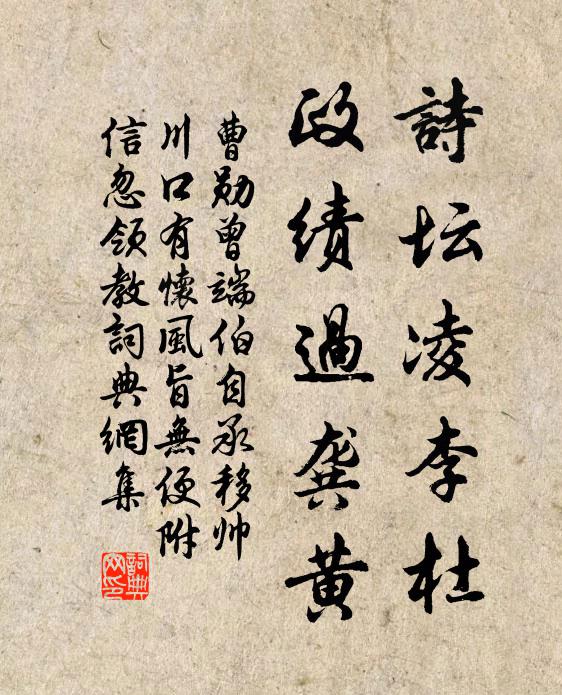 詩坛凌李杜
政绩過龚黄
曹勋曾端伯自承移帅
川口有懷風旨無便附
信忽領教詞典網集
詞典
网印